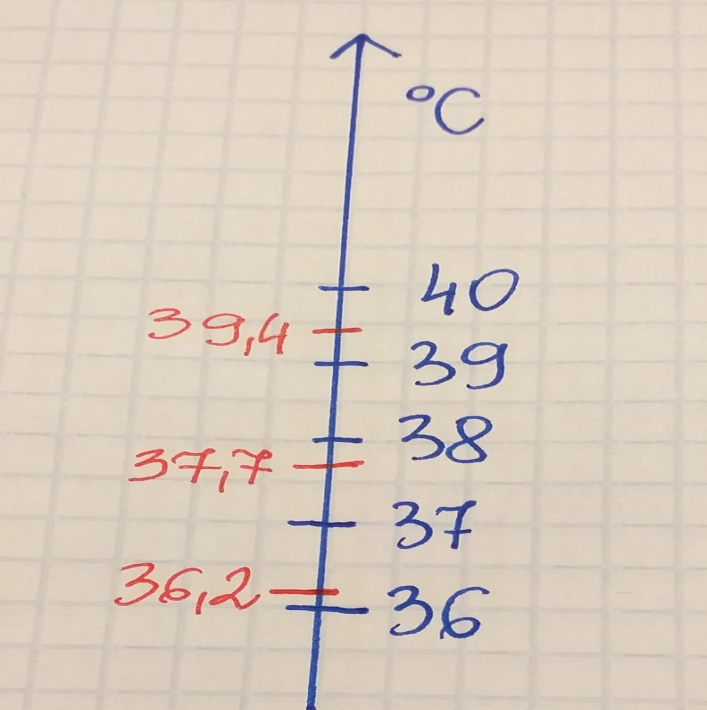 °C
40
39,4
39
38
37,7
37
36,2
36